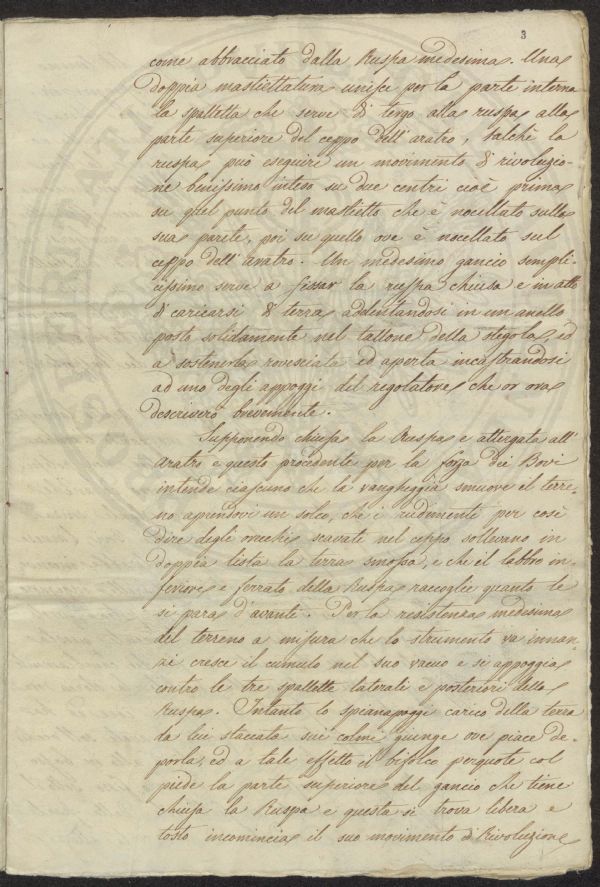 3
come abbracciato dalla Ruspa medesima. Una
doppia mastiettatura unisce per la parte interna
la spalletta che serve di tergo alla ruspa alla
parte superiore del ceppo dell'aratro, talchè la
ruspa può eseguire un movimento di rivoluzio-
ne benissimo inteso su due centri cioè prima
su quel punto del mastietto che è nocellato sulla
sua parete, poi su quello ove è nocellato sul
ceppo dell'aratro. Un medesimo gancio sempli-
cissimo serve a fissar la ruspa chiusa e in atto
di caricarsi di terra addentandosi in un anello
posto solidamente nel tallone della stegola, ed
a sostenerla rovesciata ed aperta incastrandosi
ad uno degli appoggi del regolatore che or ora
descriverò brevemente.
Supponendo chiusa la Ruspa e attergata all'
aratro e questo procedente per la forza dei Bovi
intende ciascuno che la vangheggia smuove il terre-
no aprendovi un solco, che i rudimenti per così
dire degli orecchi scavati nel ceppo sollevano in
doppia lista la terra smossa, e che il labbro in-
feriore e ferrato della Ruspa raccoglie quanto le
si para d'avante. Per la resistenza medesima
del terreno a misura che lo strumento va innan-
zi cresce il cumulo nel suo vacuo e si appoggia
contro le tre spallette laterali e posteriori della
Ruspa. Intanto lo spianapoggi carico della terra
da lui staccata sui colmi giunge ove piace de-
porla, ed a tale effetto il bifolco perquote col
piede la parte superiore del gancio che tiene
chiusa la Ruspa e questa si trova libera e
tosto incomincia il suo movimento di Rivoluzione